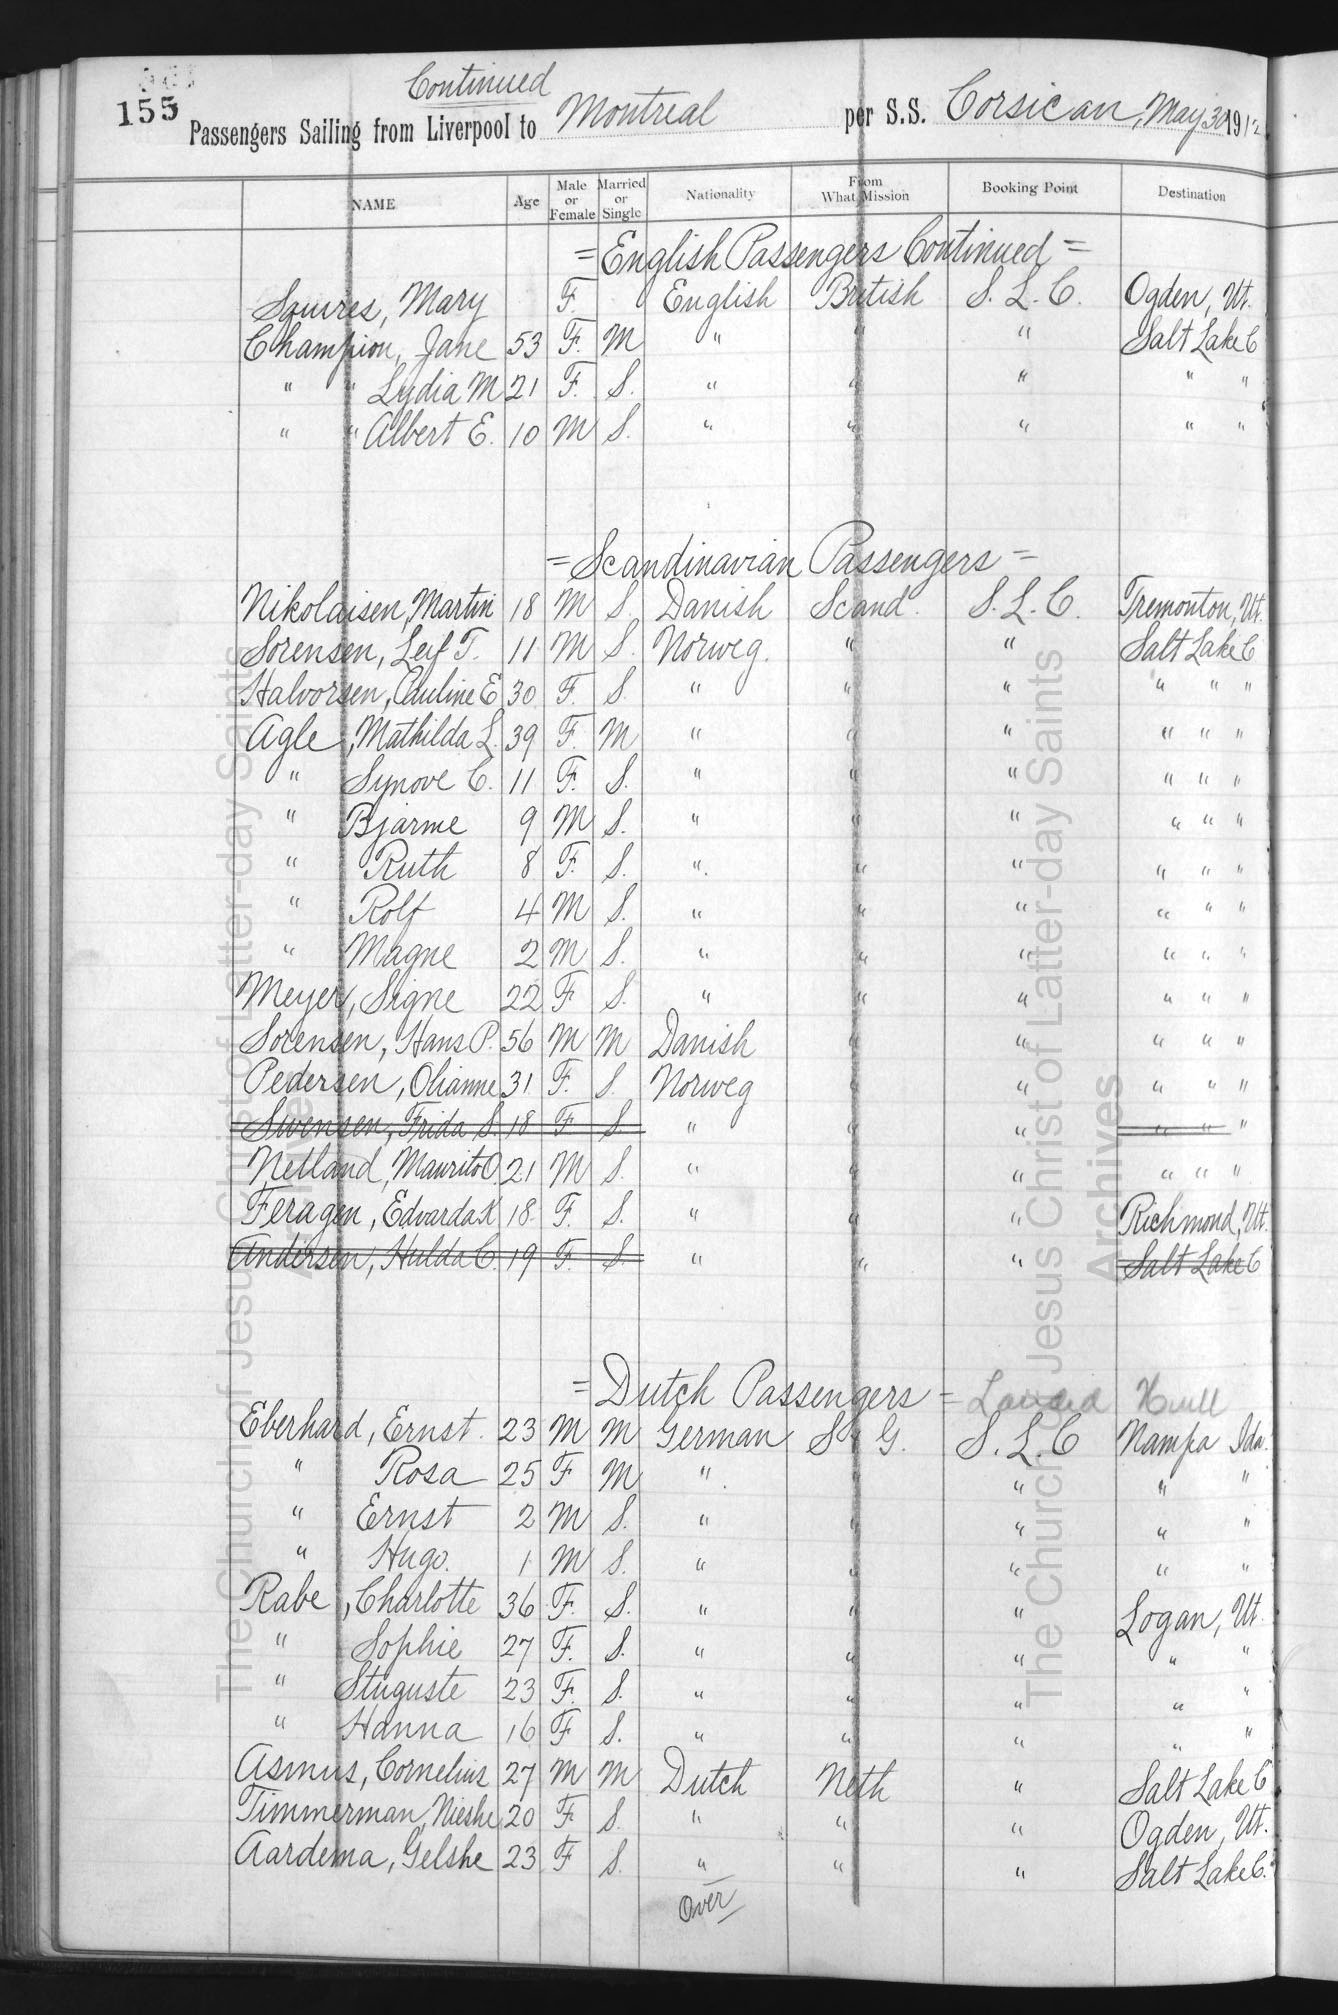 155
Continued
Passengers Sailing from Liverpool to Montreal per S.S. Corsican, May 30 1912
NAME Age Male or Female Married or Single Nationality From What Mission Booking Point Destination
= English Passengers Continued =
Squires, Mary F. English British S. L. C. Ogden, Ut.
Champion, Jane 53 F. M " " " Salt Lake C
" " Lydia M 21 F. S. " " " " "
" " Albert E. 10 M S. " " " " "
= Scandinavian Passengers =
Nikolaisen, Martin 18 M S. Danish Scand. S. L. C. Tremonton, Ut.
Sorensen, Leif T. 11 M S. Norweg. " " Salt Lake C
Halvorsen, Pauline E 30 F. S. " " " " " "
Agle, Mathilda L. 39 F. M " " " " " "
" Synove C. 11 F. S. " " " " " "
" Bjarme 9 M S. " " " " " "
" Ruth 8 F. S. " " " " " "
" Rolf 4 M S. " " " " " "
" Magne 2 M S. " " " " " "
Meyer, Signe 22 F S. " " " " " "
Sorensen, Hans P. 56 M M Danish " " " " "
Pedersen, Olianne 31 F. S. Norweg " " " " "
Swensen, Frida S. 18 F S. " " " " " "
Netland, Maurits O. 21 M S. " " " " " "
Feragen, Edvarda K 18 F. S. " " " Richmond, Ut.
Andersen, Hulda C. 19 F. S. " " " Salt Lake C
= Dutch Passengers = Hull
Eberhard, Ernst. 23 M M German S. G. S. L. C Nampa Ida.
" Rosa 25 F M " " " " "
" Ernst 2 M S. " " " " "
" Hugo. 1 M S. " " " " "
Rabe, Charlotte 36 F. S. " " " Logan, Ut.
" Sophie 27 F. S. " " " " "
" Stuguste 23 F. S. " " " " "
" Hanna 16 F S. " " " " "
Asmus, Cornelius 27 M M Dutch Neth " Salt Lake C
Timmerman, Nieshe 20 F S. " " " Ogden, Ut.
Aardema, Gelshe 23 F S. " " " Salt Lake C.
Over
The Church of Jesus Christ of Latter-day Saints
Archives
The Church of Jesus Christ of Latter-day Saints
Archives